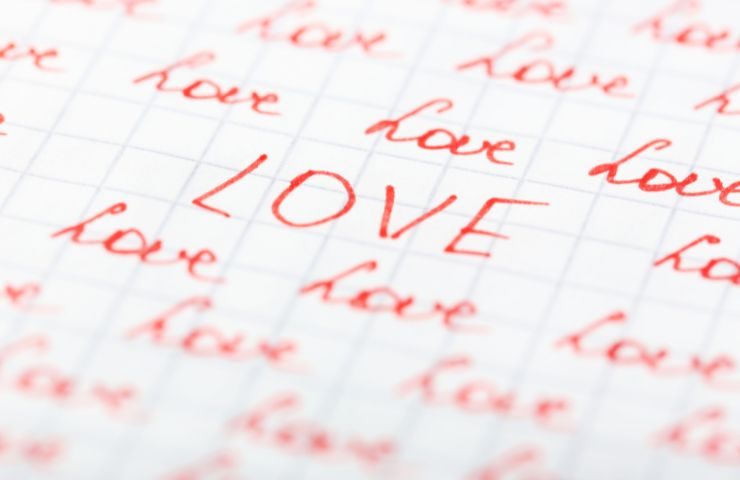 Love Love
Love Love Love
LOVE
Love Love Love
Love Love
Love Love